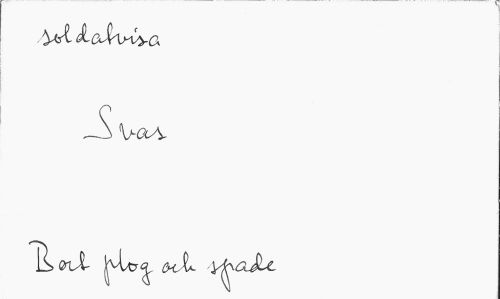 soldatvisa
Svas
Bort plog och spade